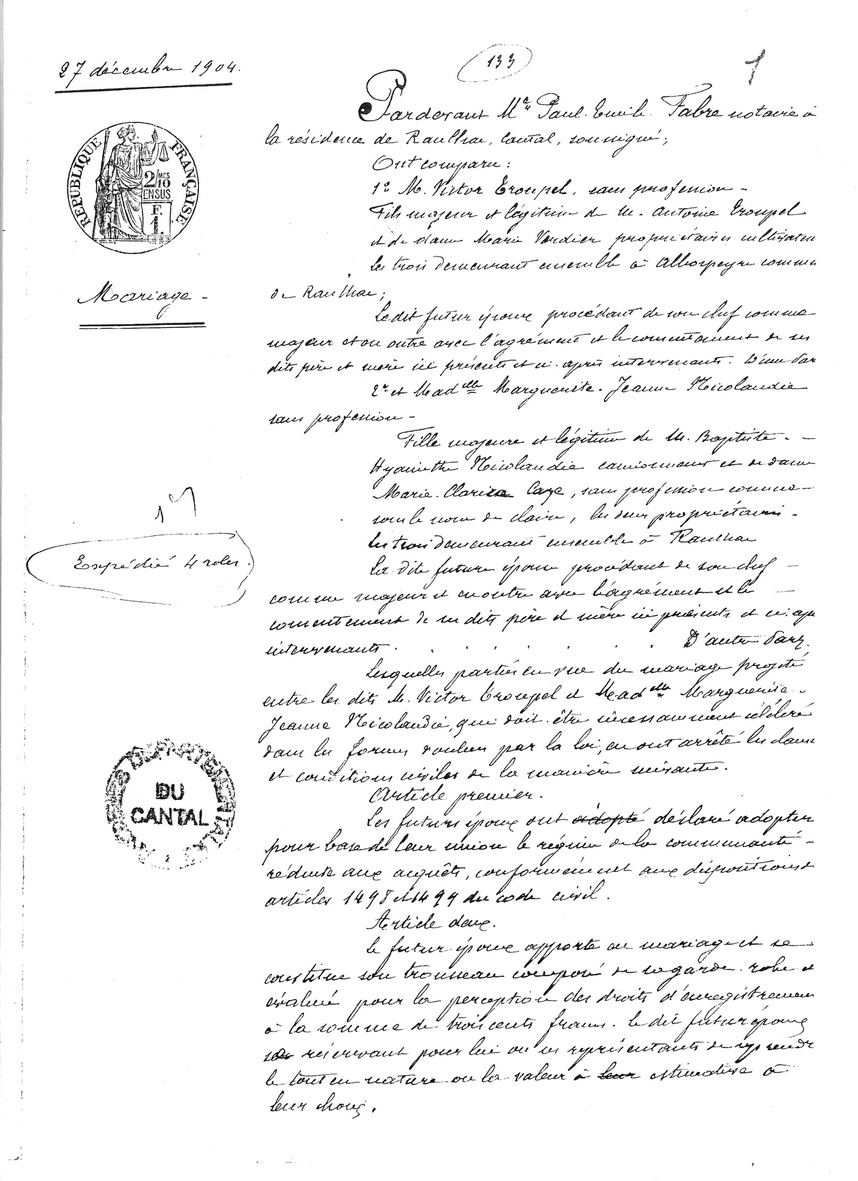 27 décembre 1904.
133
1
RÉPUBLIQUE FRANÇAISE
2/10 MES
EN SUS
F.
1
Mariage -
Expédié 4 roles.
ARCHIVES DEPARTEMENTALES
DU
CANTAL
Pardevant Me Paul-Emile Fabre notaire à
la résidence de Raulhac, Cantal, soussigné;
Ont comparu:
1° M. Victor Troupel, sans profession -
Fils majeur et légitime de M. Antoine Troupel
et de dame Marie Verdier propriétaires cultivateu
les trois demeurant ensemble à commu
de Raulhac;
Le dit futur époux procédant de son chef comme
majeur et en outre avec l'agrément et le consentement de ses
dits père et mère ici présents et ci-après intervenants. D'une Par
2° et Madelle Marguerite-Jeanne Nicolaudie
sans profession -
Fille majeure et légitime de M. Baptiste -
Hyacinthe Nicolaudie et de dame
Marie-Clarisse Caze, sans profession connue
sous le nom de Claire, les deux propriétaires -
les trois demeurant ensemble à Raulhac
La dite future épouse procédant de son chef -
comme majeur et en outre avec l'agrément et le -
consentement de ses dits père et mère ici présents et ci-ap
intervenants. D'autre Part.
Lesquelles parties en vue du mariage projeté
entre les dits M. Victor Troupel et Madelle Marguerite -
Jeanne Nicolaudie, qui doit être incessamment célébré
dans les formes voulues par la loi, en ont arrêté les clauses
et conditions civiles de la manière suivante.
Article premier.
Les futurs époux ont adopté déclaré adopter
pour base de leur union le régime de la communauté -
réduite aux acquêts, conformément aux dispositions de
articles 1498 et 1499 du code civil.
Article deux.
Le futur époux apporte au mariage et se
constitue son trousseau composé de sa garde-robe et
évalué pour la perception des droits d'enregistrement
à la somme de trois cents francs. Le dit futur époux
se réservant pour lui ou ses représentants de reprendre
le tout en nature ou la valeur à leur estimative à
leur choix.